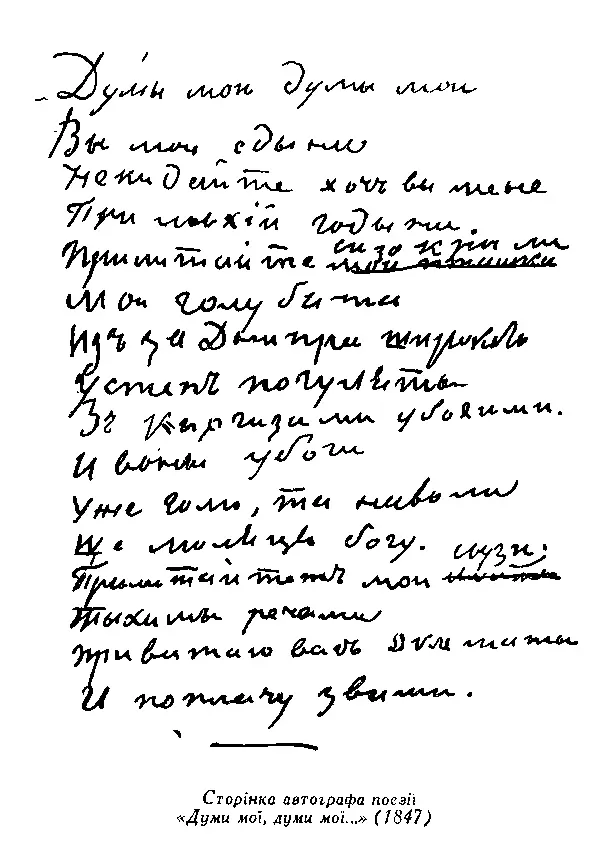 Думы мои думы мои
Вы мои едыни
Некидайте хочъ вы мене
При лыхій годыни.
Прилитайте сизокрыли
мои пташки
Мои голубята
Изъ за Днипра широкого
Устепъ погуляты
Зъ Кыргизами убогими.
И воны убоги
Уже голи, та наволи
Ще молятця богу.
Прилитайтежъ мои любі:
Тыхимы речами
Привитаю васъ якъ диты
И поплачу звами.
Сторінка автографа поезії
«Думи мої, думи мої...» (1847)